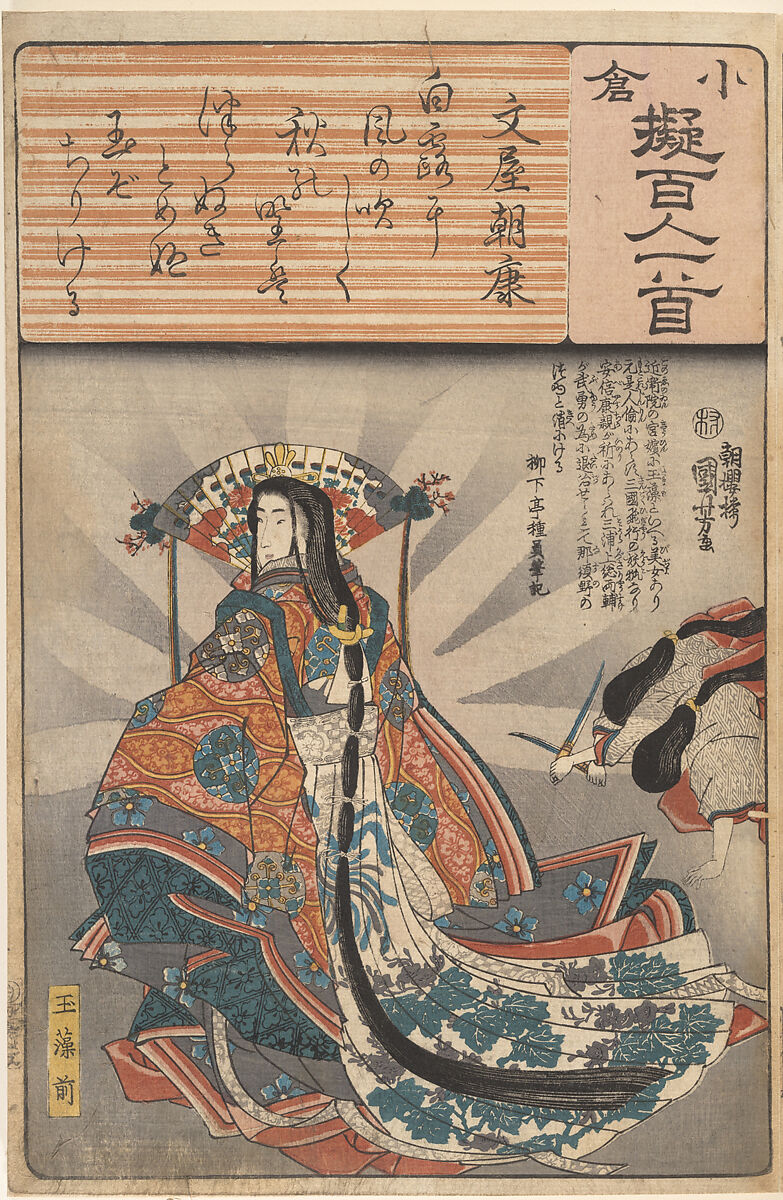 小倉
擬百人一首
文屋朝康
白露耳
風の吹
しく
秋能
野は
つらぬき
とめぬ
玉ぞ
ちりける
近衛院の宮嬪小玉藻といへる美女あり
元是人倫にあらず三國飛行の妖狐なり
安倍康親が祈にあらはれ三浦上総両輔
が武勇の為に退治せられて那須野の
柳下亭種員筆記
朝櫻楼
國芳画
村
玉藻前